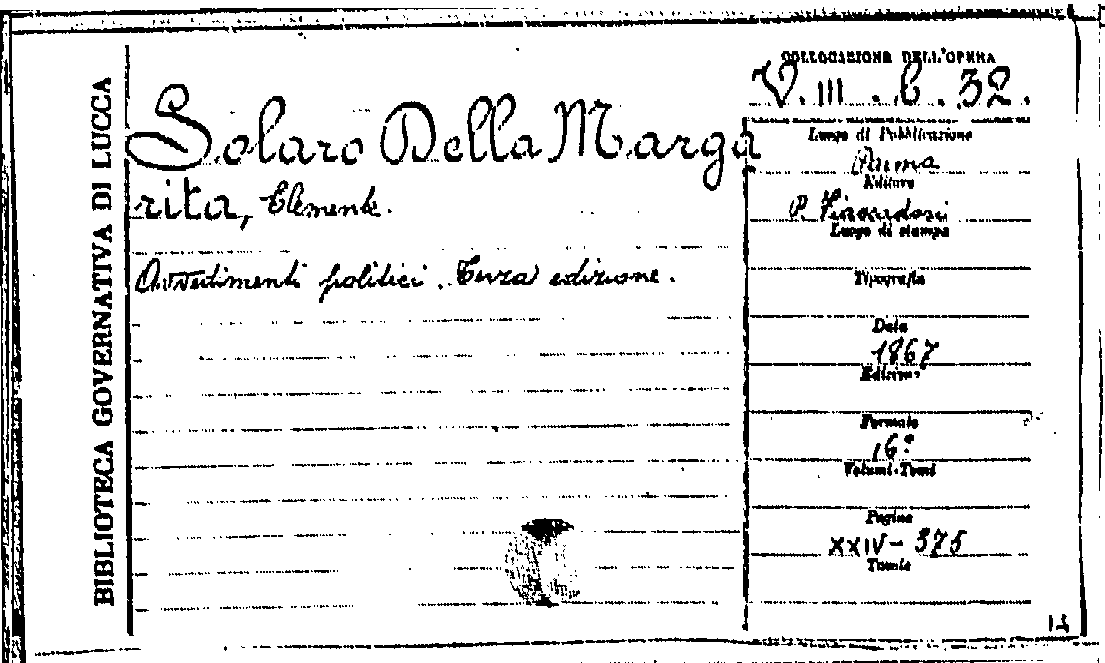 BIBLIOTECA GOVERNATIVA DI LUCCA
Solaro Della Marga
rita, Clemente.
Avvertimenti politici. Terza edizione.
COLLOCAZIONE DELL'OPERA
V. III. b. 32.
Luogo di Pubblicazione
Parma
Editore
P. Fiaccadori
Luogo di stampa
Tipografia
Data
1867
Edizione
Formato
16°
Volumi-Tomi
Pagine
XXIV - 375
Tavole